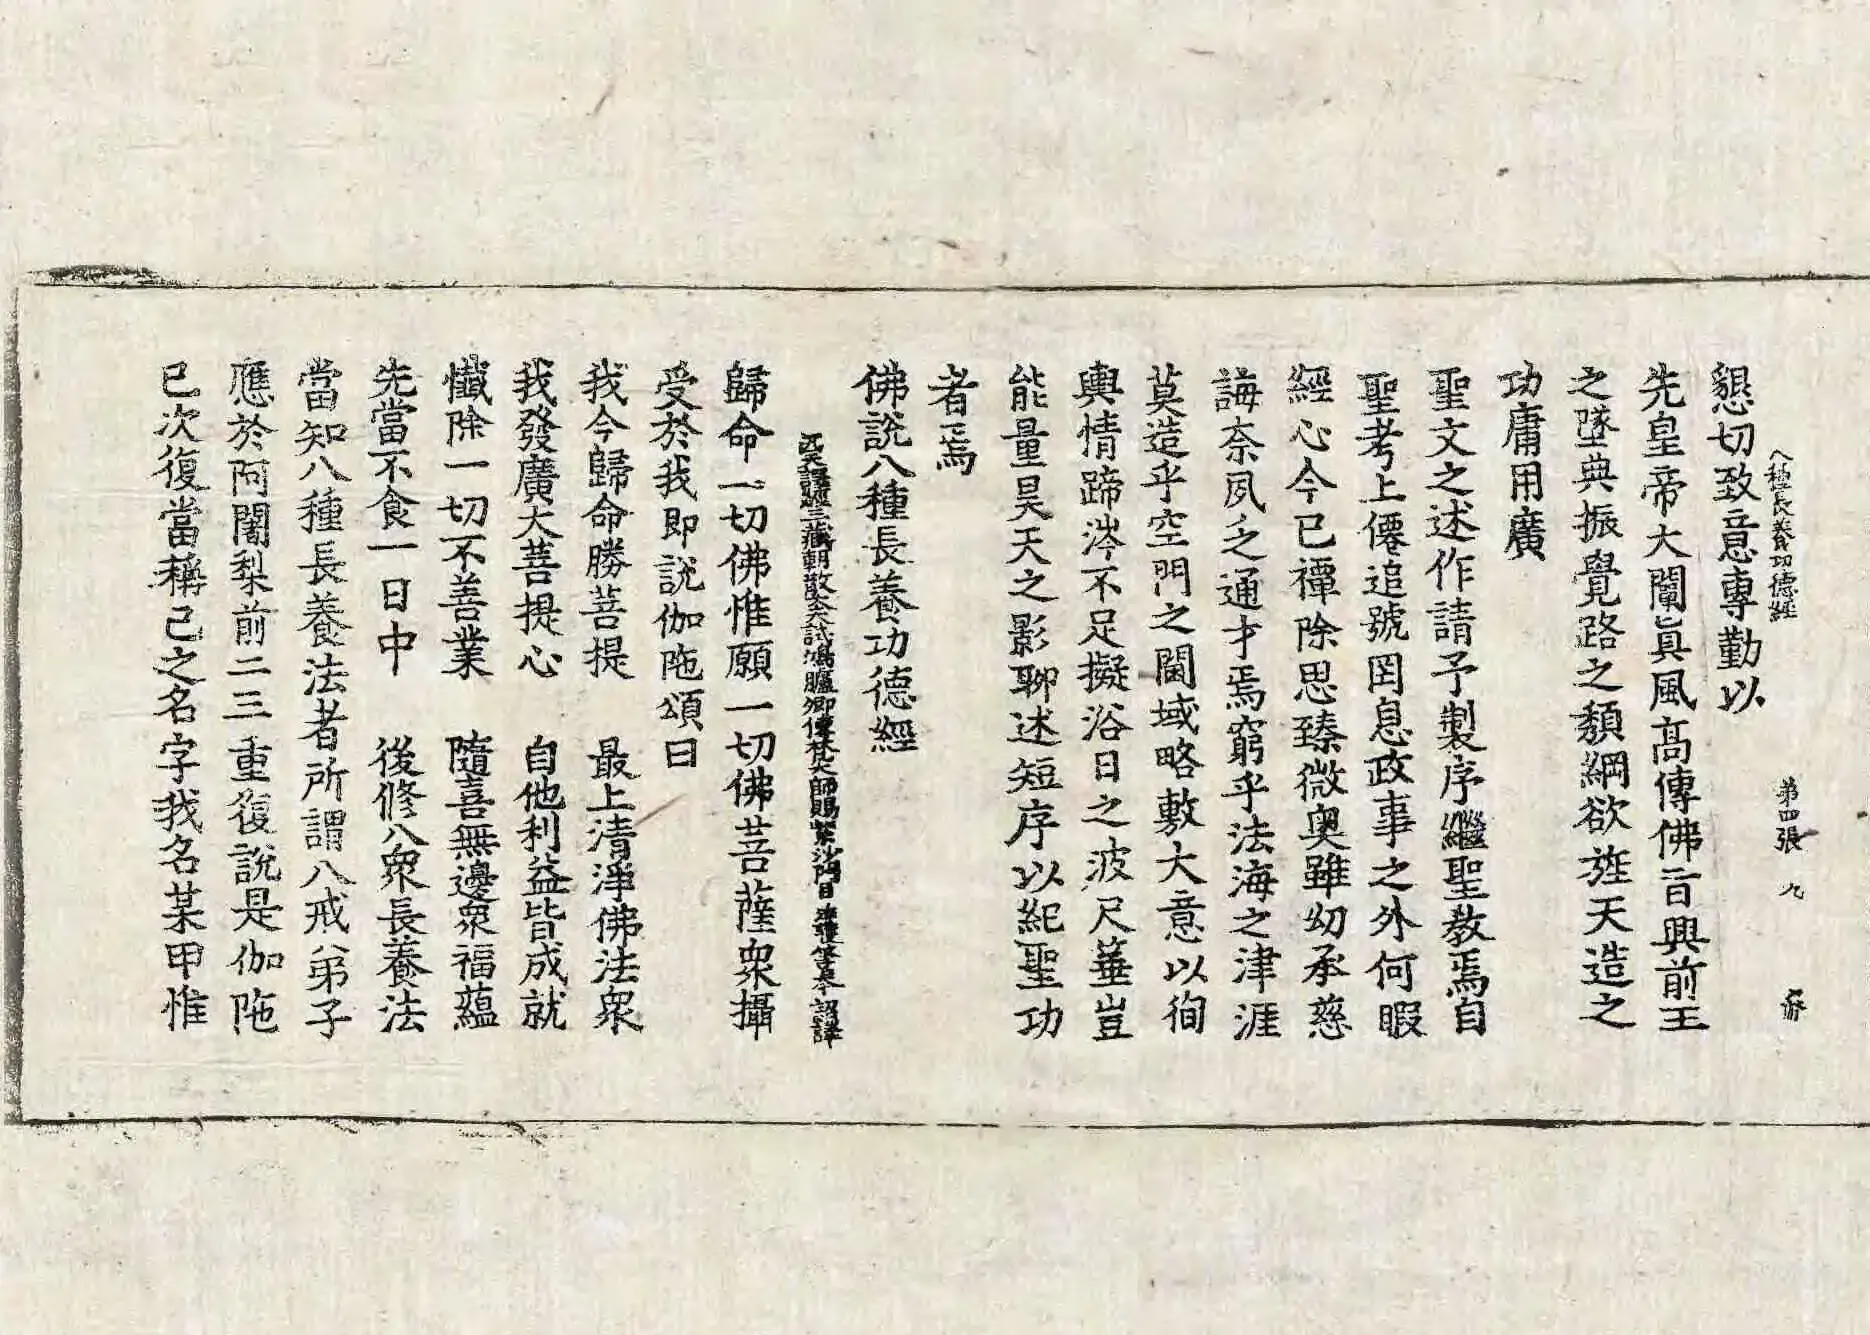 八種長養功德經 第四張 九
懇切致意專勤以
先皇帝大闡眞風高傳佛旨興前王
之墜典振覺路之頹綱欲旌天造之
功庸用廣
聖文之述作請予製序繼聖教焉自
聖考上僊追號罔息政事之外何暇
經心今已禫除思臻微奥雖幼承慈
誨奈夙乏通才焉窮乎法海之津涯
莫造乎空門之閫域略敷大意以徇
輿情蹄涔不足擬浴日之波尺箠豈
能量昊天之影聊述短序以紀聖功
者焉
佛說八種長養功德經
西天譯經三藏朝散大夫試鴻臚卿傳梵大師賜紫沙門臣法護等奉詔譯
歸命一切佛惟願一切佛菩薩衆攝
受於我即說伽陁頌曰
我今歸命勝菩提 最上清淨佛法衆
我發廣大菩提心 自他利益皆成就
懺除一切不善業 隨喜無邊衆福蘊
先當不食一日中 後修八衆長養法
當知八種長養法者所謂八戒弟子
應於阿闍梨前二三重復說是伽陁
已次復當稱己之名字我名某甲惟